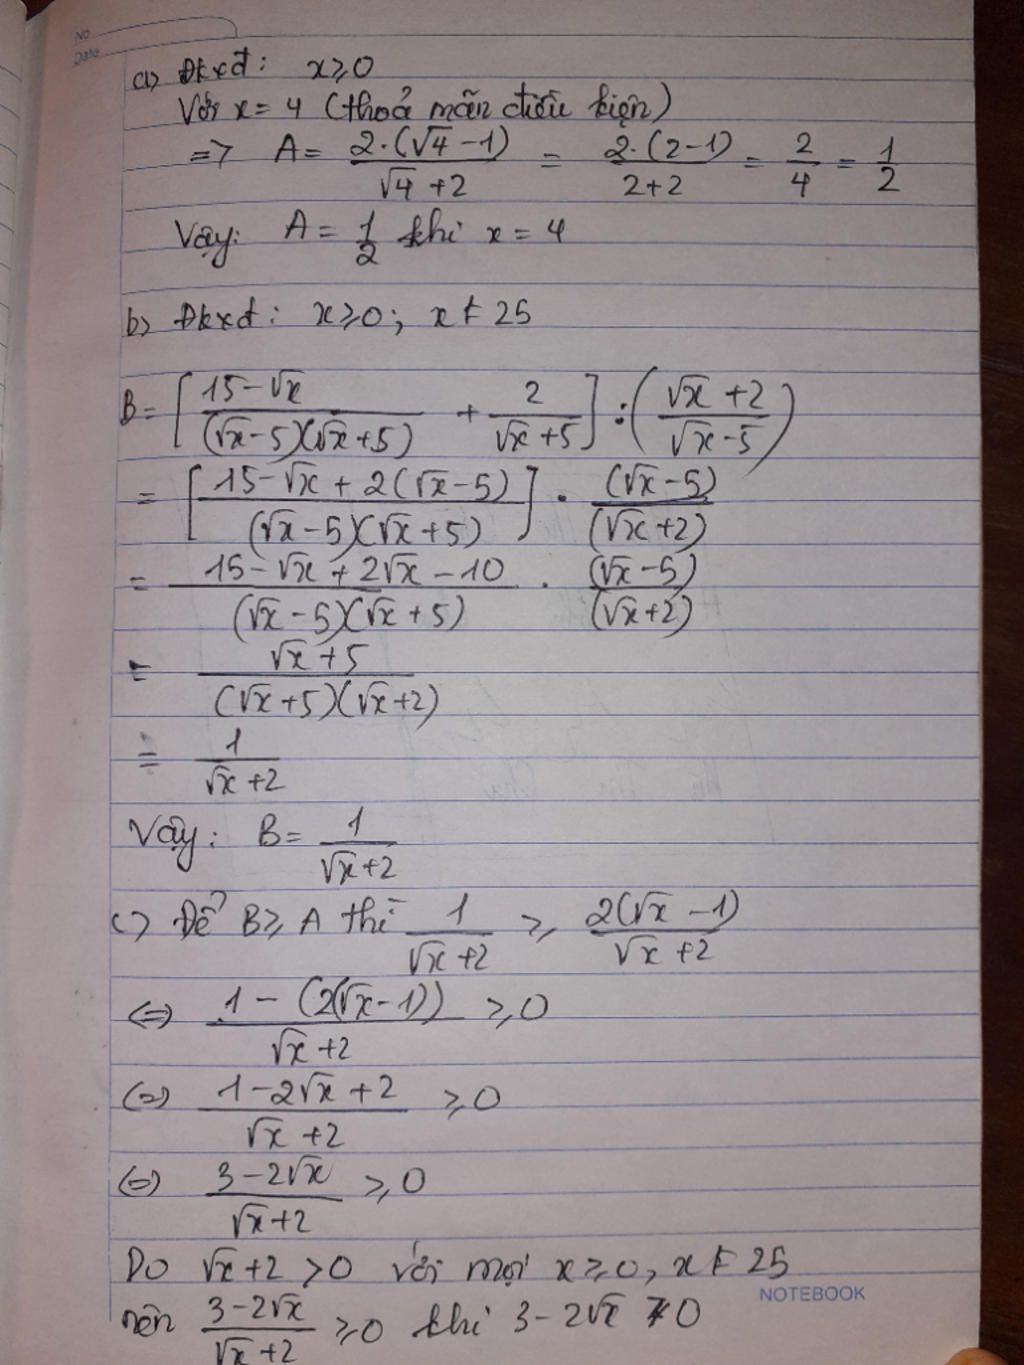 No
Date
a) Đkxđ: x ≥ 0
Với x = 4 (thoả mãn điều kiện)
=> A = 2.(√4 - 1) / (√4 + 2) = 2.(2-1) / (2+2) = 2/4 = 1/2
Vậy: A = 1/2 khi x = 4
b) Đkxđ: x ≥ 0; x ≠ 25
B = [ (15-√x) / ((√x-5)(√x+5)) + 2 / (√x+5) ] : ( (√x+2) / (√x-5) )
= [ (15-√x + 2(√x-5)) / ((√x-5)(√x+5)) ] . (√x-5) / (√x+2)
= (15-√x + 2√x - 10) / ((√x-5)(√x+5)) . (√x-5) / (√x+2)
= (√x+5) / ((√x+5)(√x+2))
= 1 / (√x+2)
Vậy: B = 1 / (√x+2)
c) Để B ≥ A thì 1 / (√x+2) ≥ 2(√x-1) / (√x+2)
(=) (1 - (2(√x-1))) / (√x+2) ≥ 0
(=) (1 - 2√x + 2) / (√x+2) ≥ 0
(=) (3 - 2√x) / (√x+2) ≥ 0
Do √x+2 > 0 với mọi x ≥ 0, x ≠ 25
NOTEBOOK
nên (3-2√x) / (√x+2) ≥ 0 khi 3 - 2√x ≥ 0